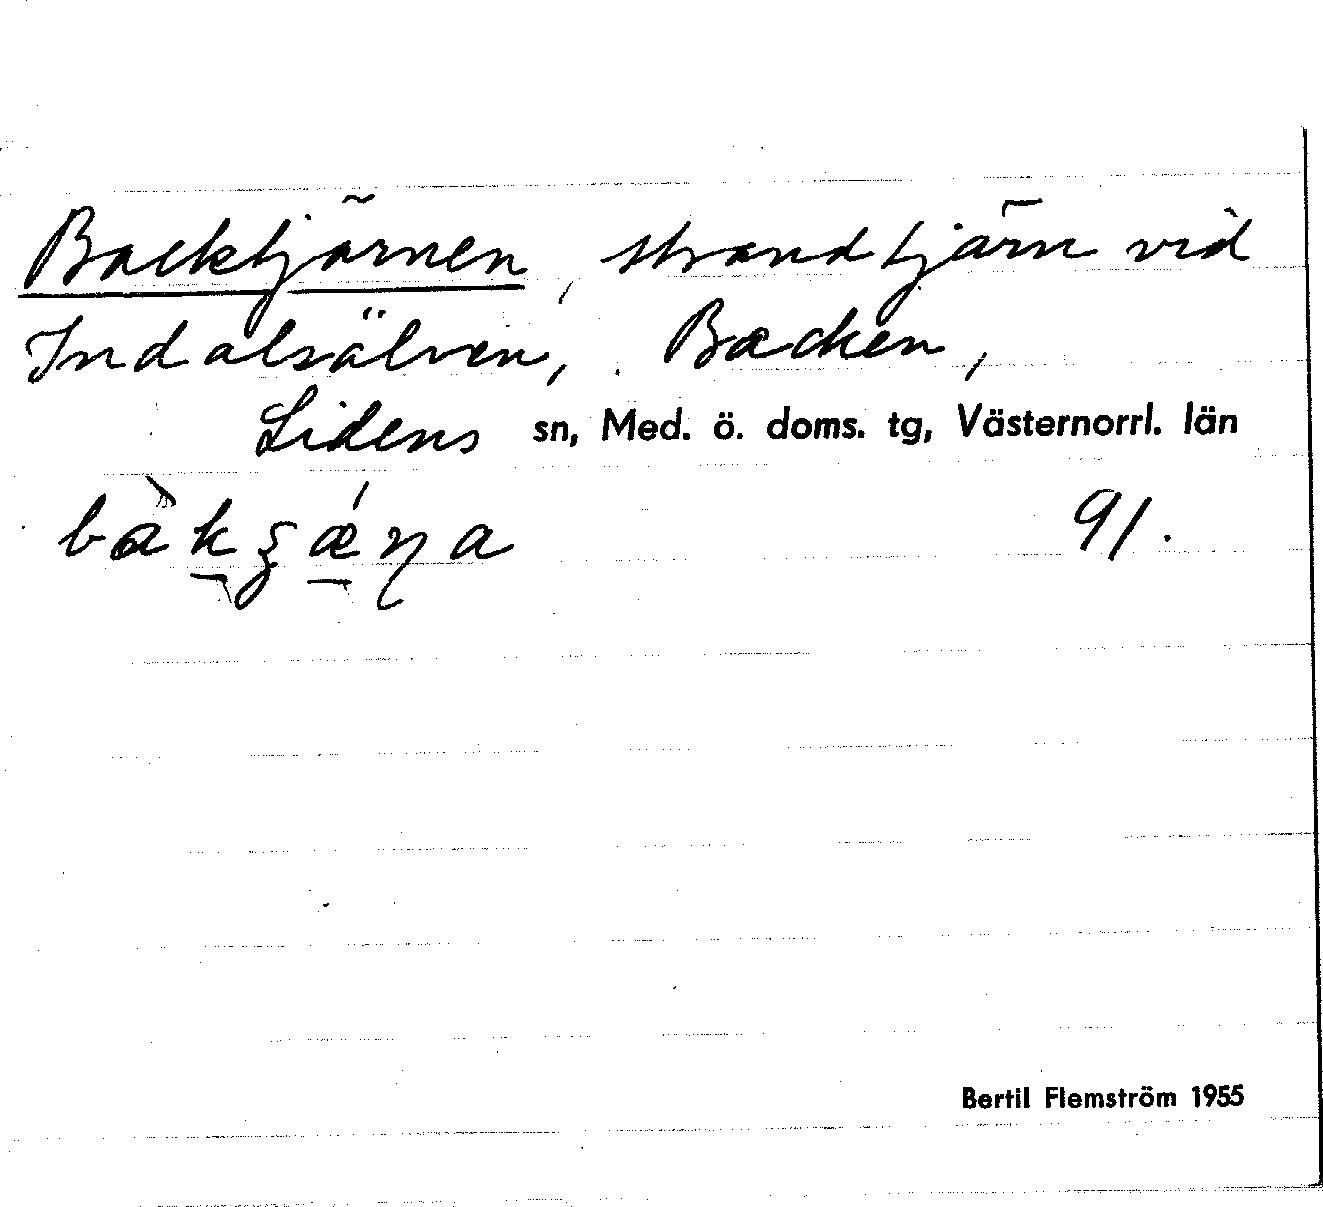 Backtjärnen, strandtjärn vid
Indalsälven, Backen,
Lidens sn, Med. ö. doms. tg, Västernorrl. län
91.
Bertil Flemström 1955